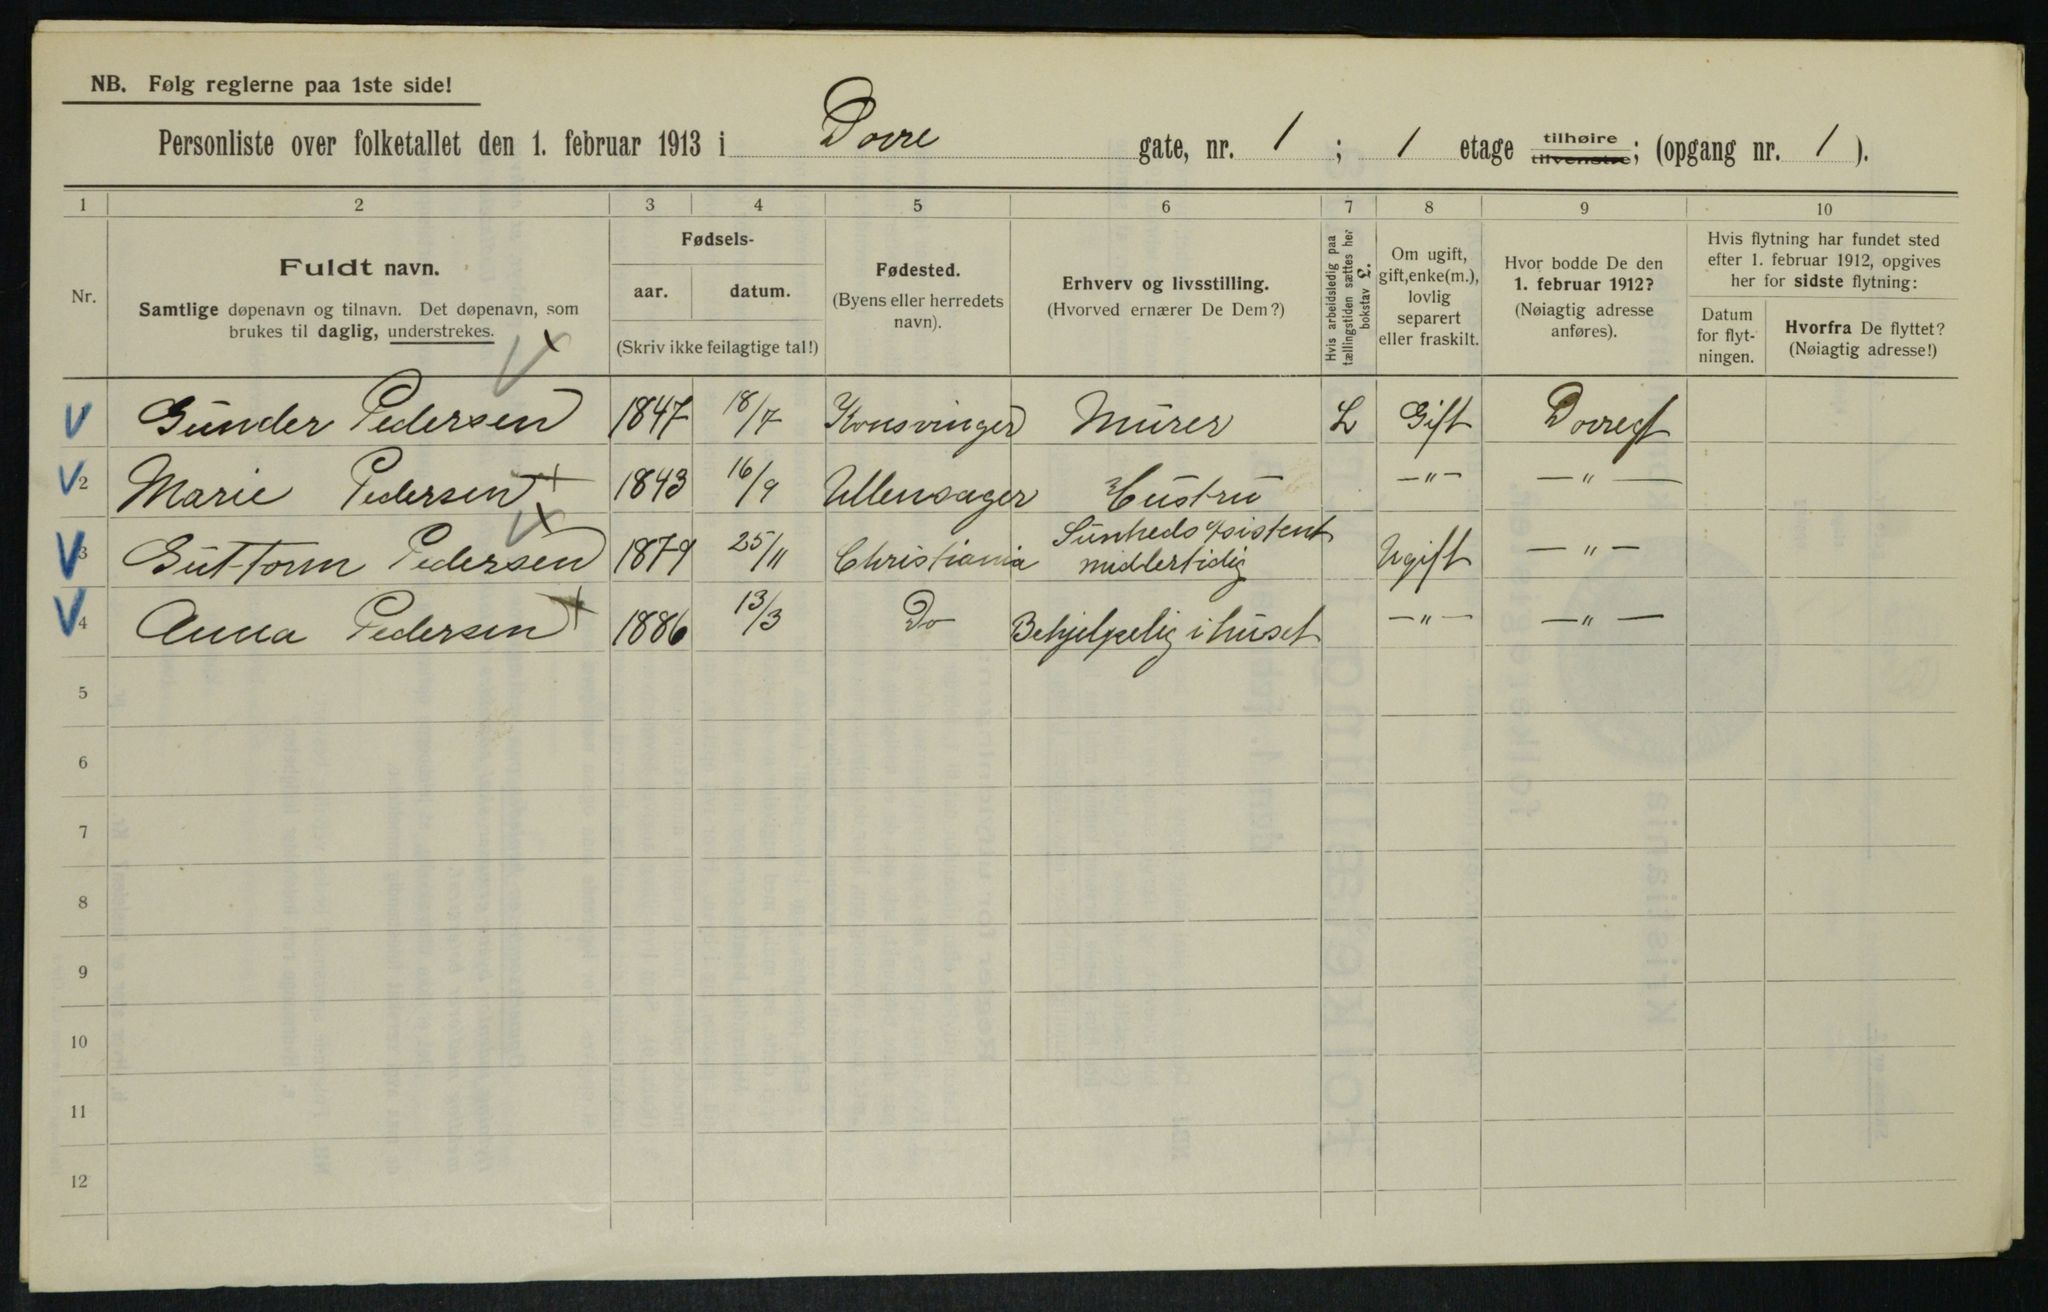 NB. Følg reglerne paa 1ste side!
Personliste over folketallet den 1. februar 1913 i Dovre gate, nr. 1 ; 1 etage tilhøire tilvenstre; (opgang nr. 1 ).
1 2 3 4 5 6 7 8 9 10
Nr.
Fuldt navn.
Samtlige døpenavn og tilnavn. Det døpenavn, som
brukes til daglig, understrekes.
Fødsels-
aar. datum.
(Skriv ikke feilagtige tal!)
Fødested.
(Byens eller herredets
navn).
Erhverv og livsstilling.
(Hvorved ernærer De Dem?)
Hvis arbeidsledig paa
tællingstiden sættes her
bokstav L.
Om ugift,
gift, enke(m.),
lovlig
separert
eller fraskilt.
Hvor bodde De den
1. februar 1912?
(Nøiagtig adresse
anføres).
Hvis flytning har fundet sted
efter 1. februar 1912, opgives
her for sidste flytning:
Datum
for flyt-
ningen.
Hvorfra De flyttet?
(Nøiagtig adresse!)
Gunder Pedersen 1847 18/7 Konsvinger Murer L Gift Dovregt
2 Marie Pedersen 1843 16/9 Ullensager Hustru —"— —"—
3 Guttorm Pedersen 1879 25/11 Christiania Sunhedsassistent midlertidig Ugift —"—
4 Anna Pedersen 1886 13/3 Do Behjelpelig i huset —"— —"—
5
6
7
8
9
10
11
12